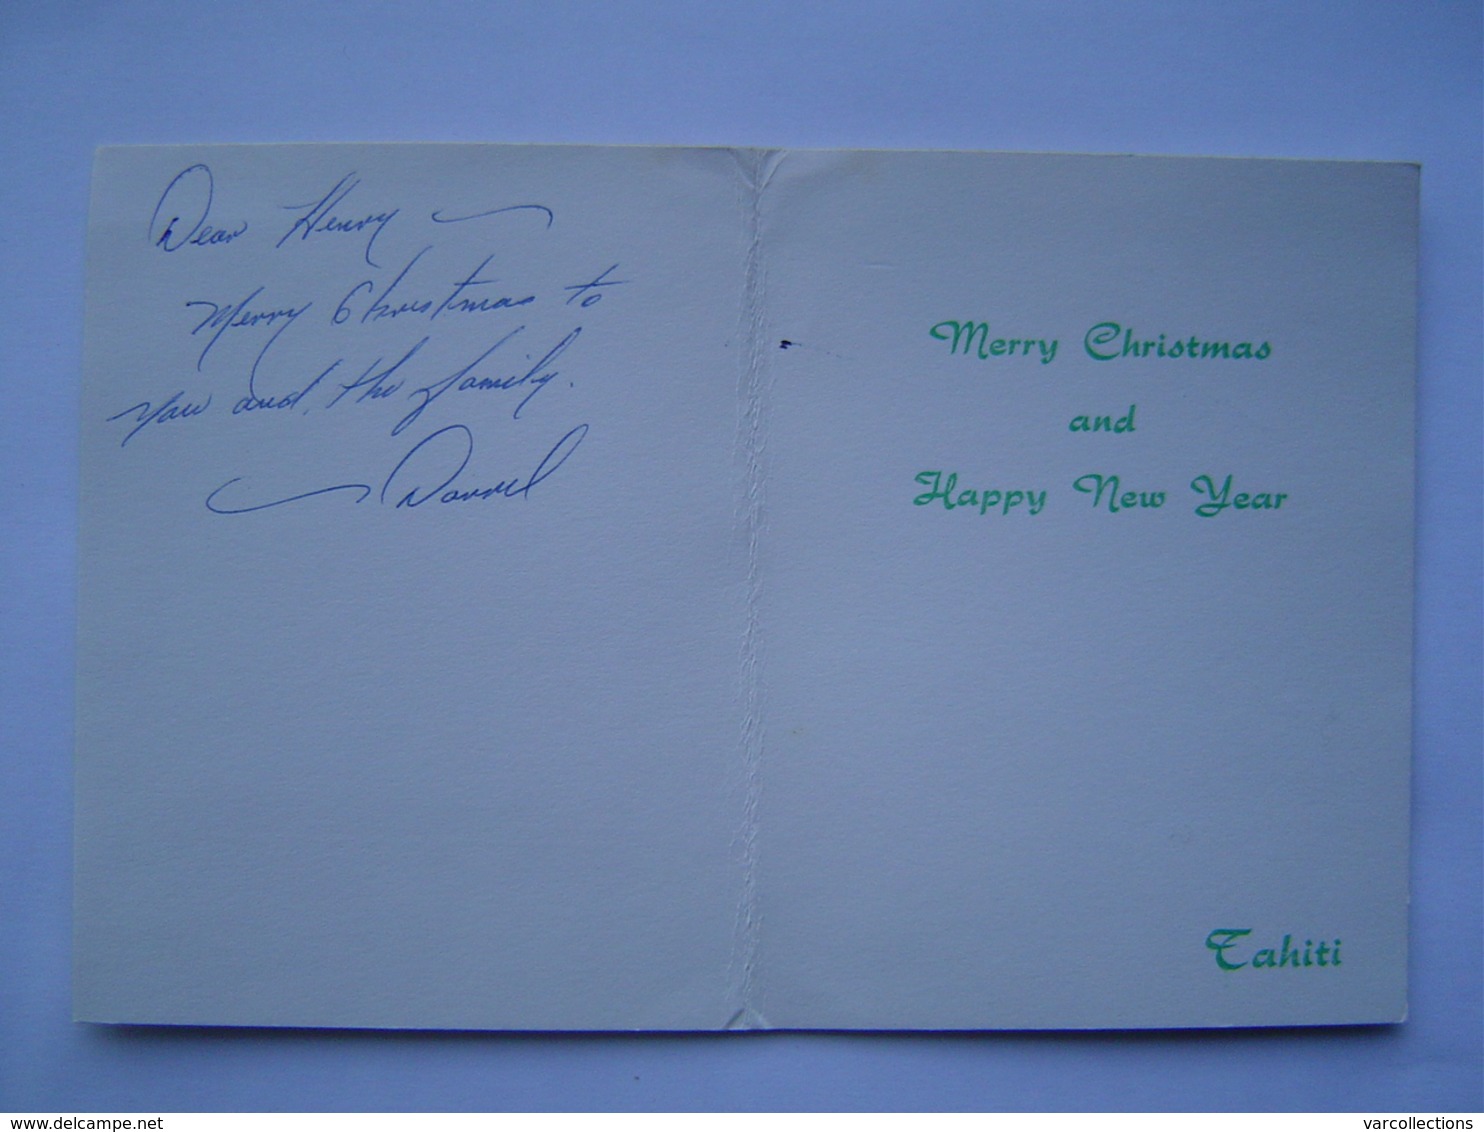 Dear Henry —
Merry Christmas to
you and the family.
— Darrel
Merry Christmas
and
Happy New Year
Tahiti
www.delcampe.net
varcollections